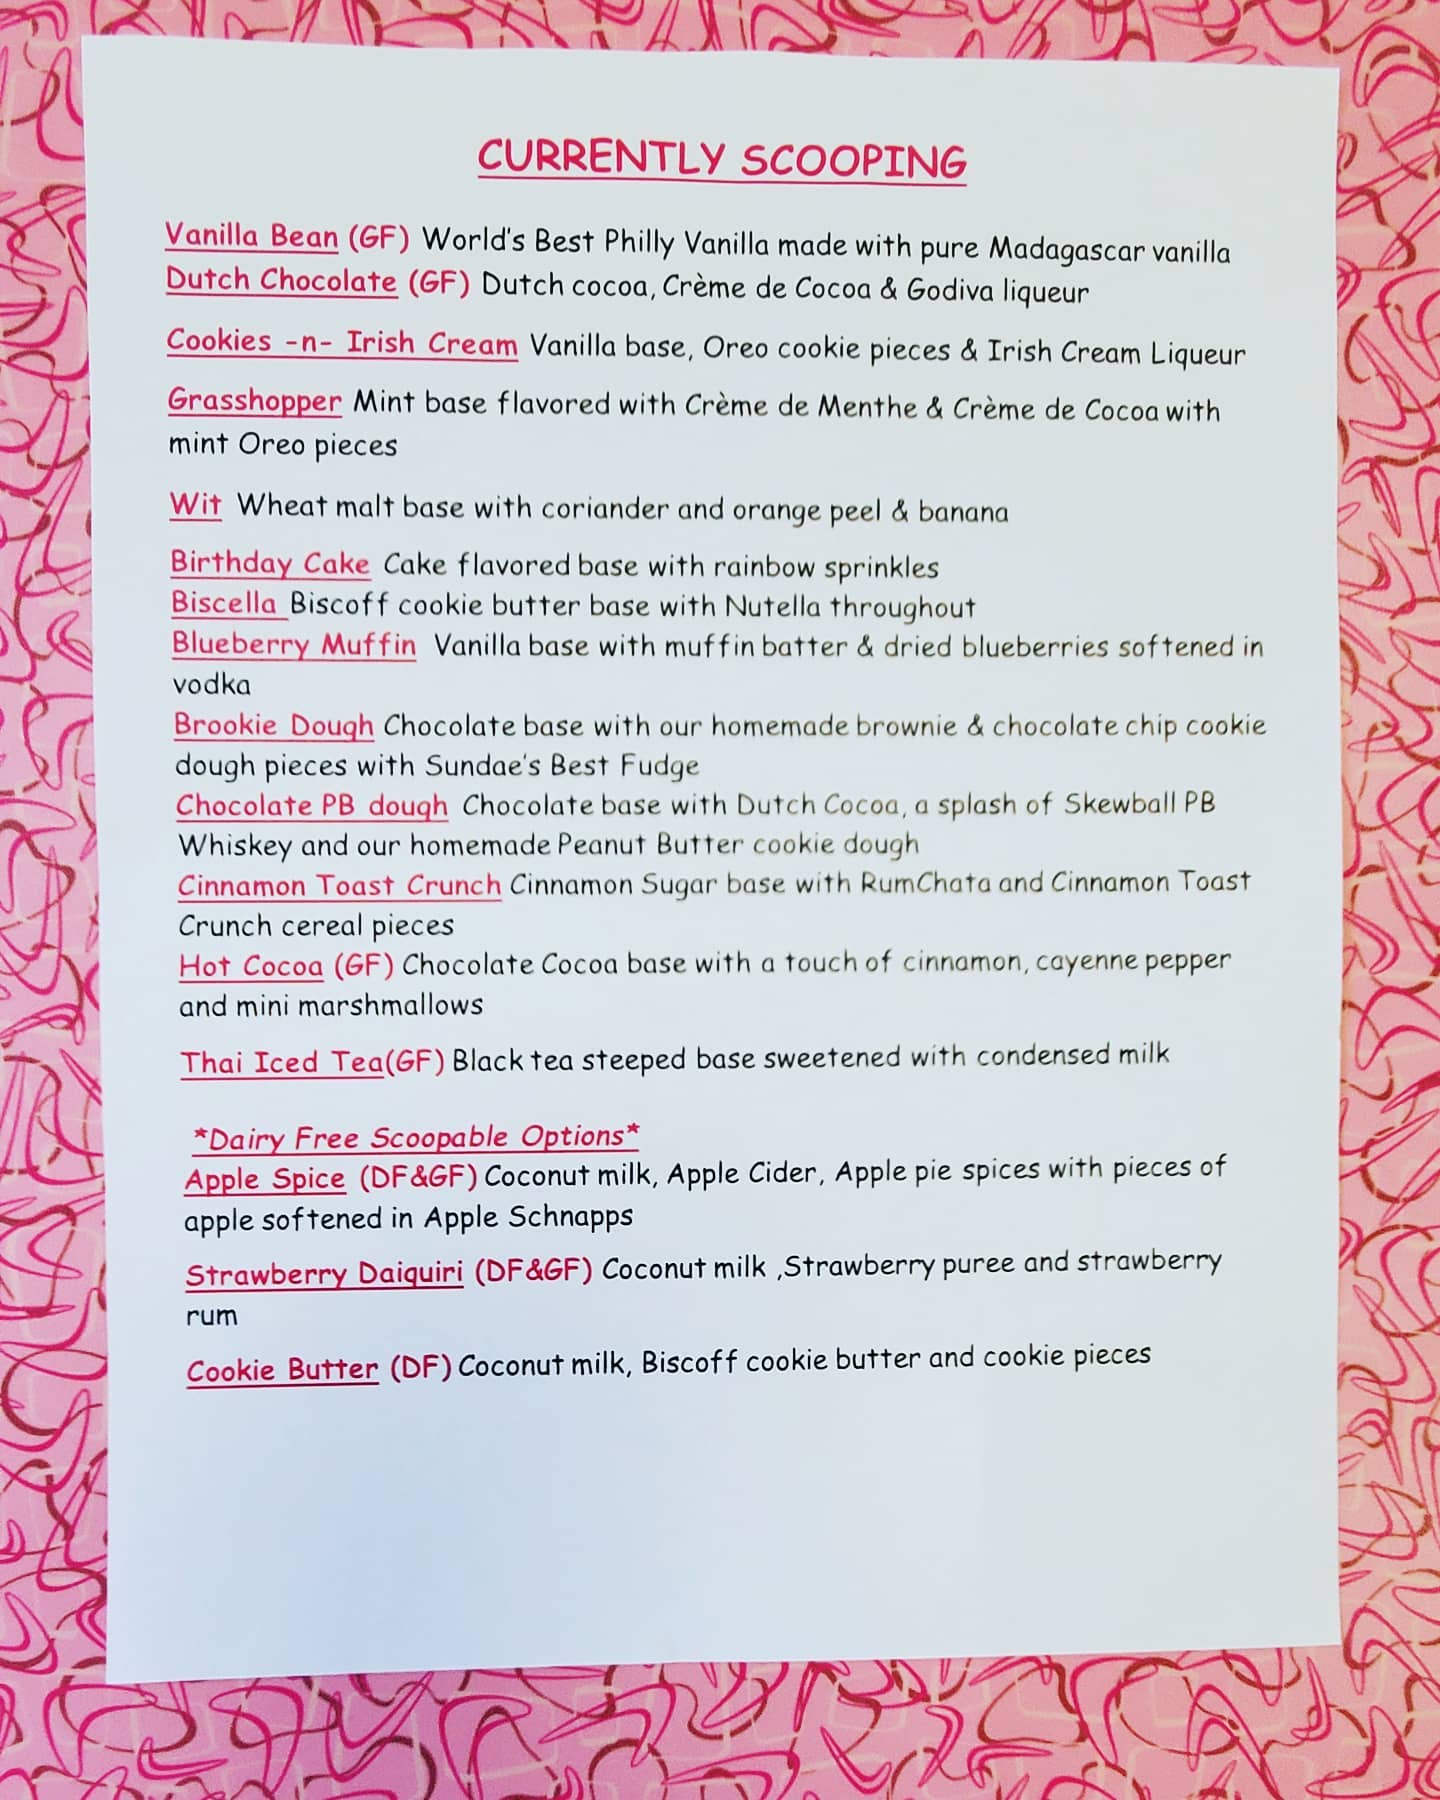 CURRENTLY SCOOPING
Vanilla Bean (GF) World's Best Philly Vanilla made with pure Madagascar vanilla
Dutch Chocolate (GF) Dutch cocoa, Crème de Cocoa & Godiva liqueur
Cookies -n- Irish Cream Vanilla base, Oreo cookie pieces & Irish Cream Liqueur
Grasshopper Mint base flavored with Crème de Menthe & Crème de Cocoa with
mint Oreo pieces
Wit Wheat malt base with coriander and orange peel & banana
Birthday Cake Cake flavored base with rainbow sprinkles
Biscella Biscoff cookie butter base with Nutella throughout
Blueberry Muffin Vanilla base with muffin batter & dried blueberries softened in
vodka
Brookie Dough Chocolate base with our homemade brownie & chocolate chip cookie
dough pieces with Sundae's Best Fudge
Chocolate PB dough Chocolate base with Dutch Cocoa, a splash of Skewball PB
Whiskey and our homemade Peanut Butter cookie dough
Cinnamon Toast Crunch Cinnamon Sugar base with RumChata and Cinnamon Toast
Crunch cereal pieces
Hot Cocoa (GF) Chocolate Cocoa base with a touch of cinnamon, cayenne pepper
and mini marshmallows
Thai Iced Tea(GF) Black tea steeped base sweetened with condensed milk
*Dairy Free Scoopable Options*
Apple Spice (DF&GF) Coconut milk, Apple Cider, Apple pie spices with pieces of
apple softened in Apple Schnapps
Strawberry Daiquiri (DF&GF) Coconut milk ,Strawberry puree and strawberry
rum
Cookie Butter (DF) Coconut milk, Biscoff cookie butter and cookie pieces